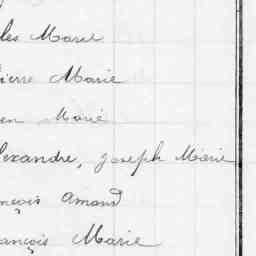 les Marie
ierre Marie
en Marie
lexandre, Joseph Marie
nçois Amand
ançois Marie